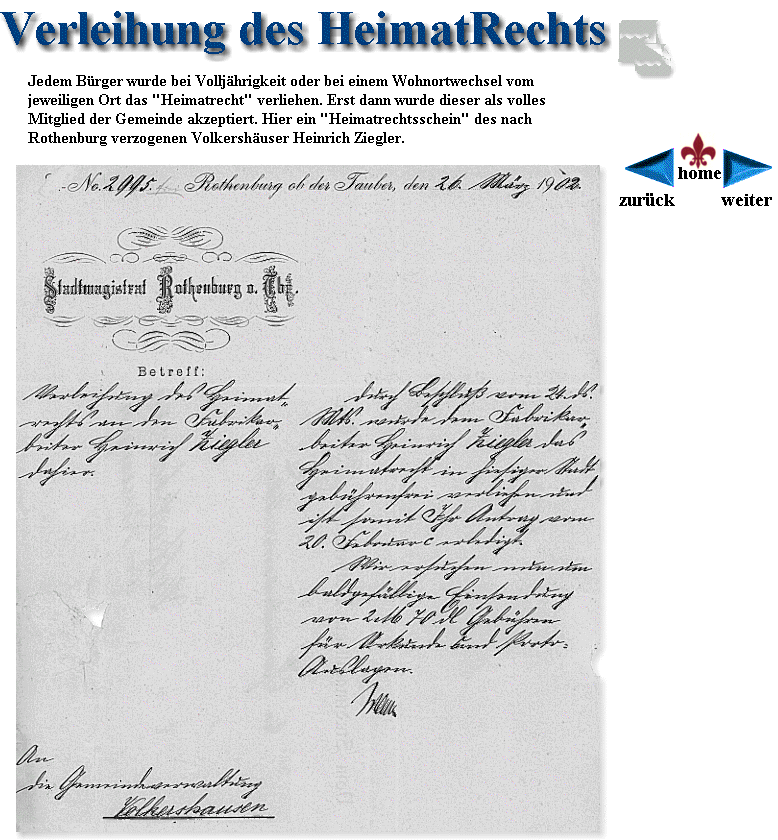 Verleihung des HeimatRechts
Jedem Bürger wurde bei Volljährigkeit oder bei einem Wohnortwechsel vom
jeweiligen Ort das "Heimatrecht" verliehen. Erst dann wurde dieser als volles
Mitglied der Gemeinde akzeptiert. Hier ein "Heimatrechtsschein" des nach
Rothenburg verzogenen Volkershäuser Heinrich Ziegler.
home
zurück weiter
No. 2995. Rothenburg ob der Tauber, den 26. März 1902.
Stadtmagistrat Rothenburg o. Tbr.
Betreff:
Verleihung des Heimat-
rechts an den Fabrikar-
beiter Heinrich Ziegler
dahier.
Durch Beschluß vom 24. ds.
Mts. wurde dem Fabrikar-
beiter Heinrich Ziegler das
Heimatrecht in hiesiger Stadt
gebührenfrei verliehen und
ist somit Ihr Antrag vom
20. Februar c erledigt.
Wir ersuchen nun um
baldgefällige Einsendung
von 2 M 70 dl Gebühren
für Urkunde und Porto-
Auslagen.
An
die Gemeindeverwaltung
Volkershausen